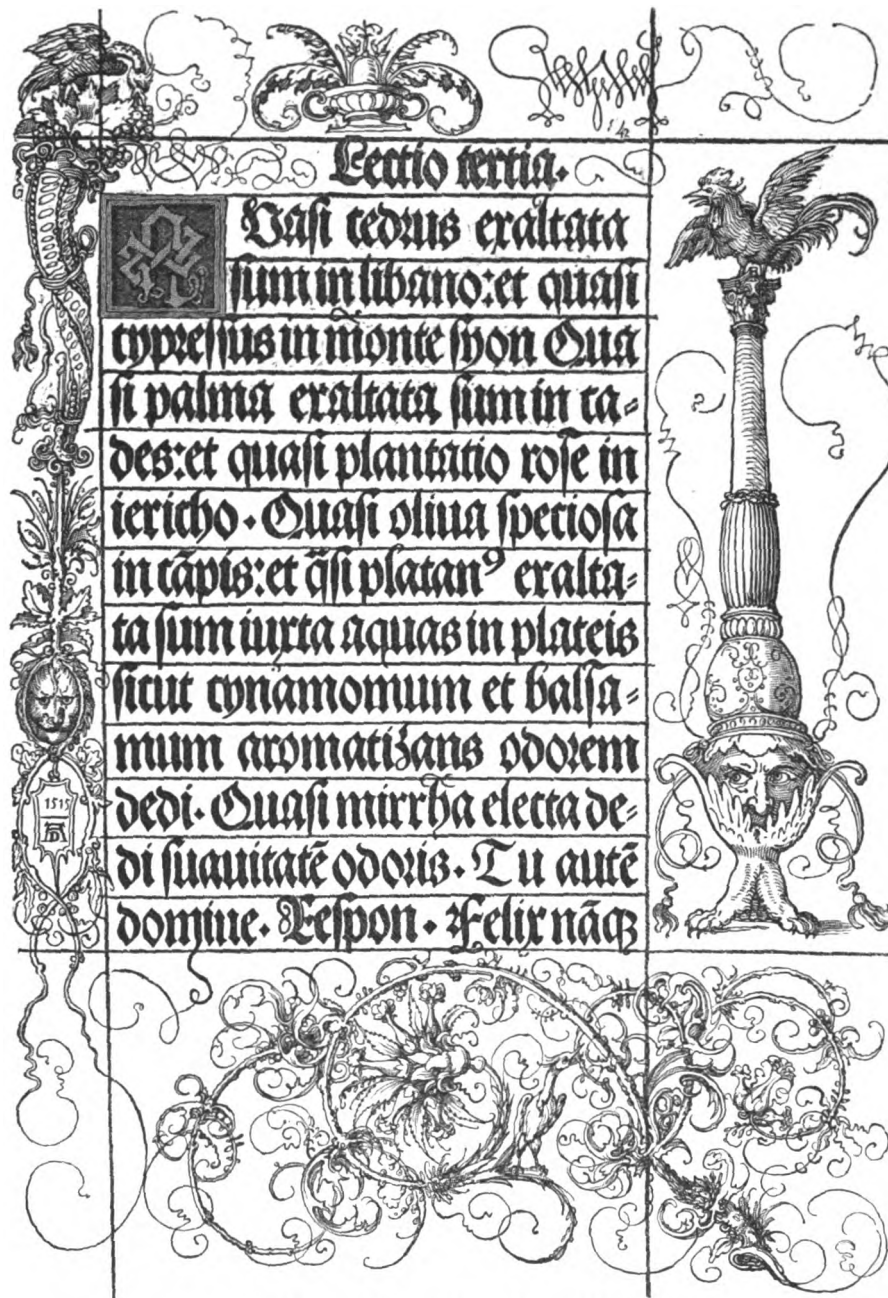 Lectio tertia.
QUasi cedrus exaltata
sum in libano: et quasi
cypressus in monte syon Qua
si palma exaltata sum in ca-
des: et quasi plantatio rose in
iericho. Quasi oliua speciosa
in cāpis: et q̄si platanꝰ exalta-
ta sum iuxta aquas in plateis
sicut cynamomum et balsa-
mum aromatizans odorem
dedi. Quasi mirrha electa de-
di suauitatē odoris. Tu autē
domine. Respon. Felix nāqꝫ
1515
AD